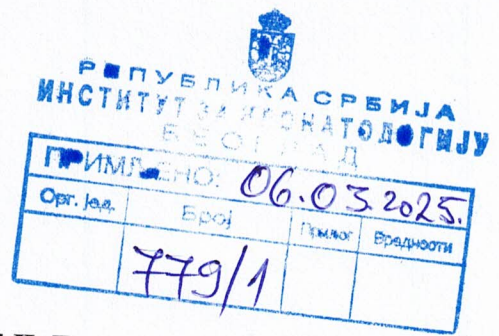 РЕПУБЛИКА СРБИЈА
ИНСТИТУТ ЗА НЕОНАТОЛОГИЈУ
БЕОГРАД
ПРИМЉЕНО: 06.03.2025.
Орг. јед. Број Прилог Вредности
779/1